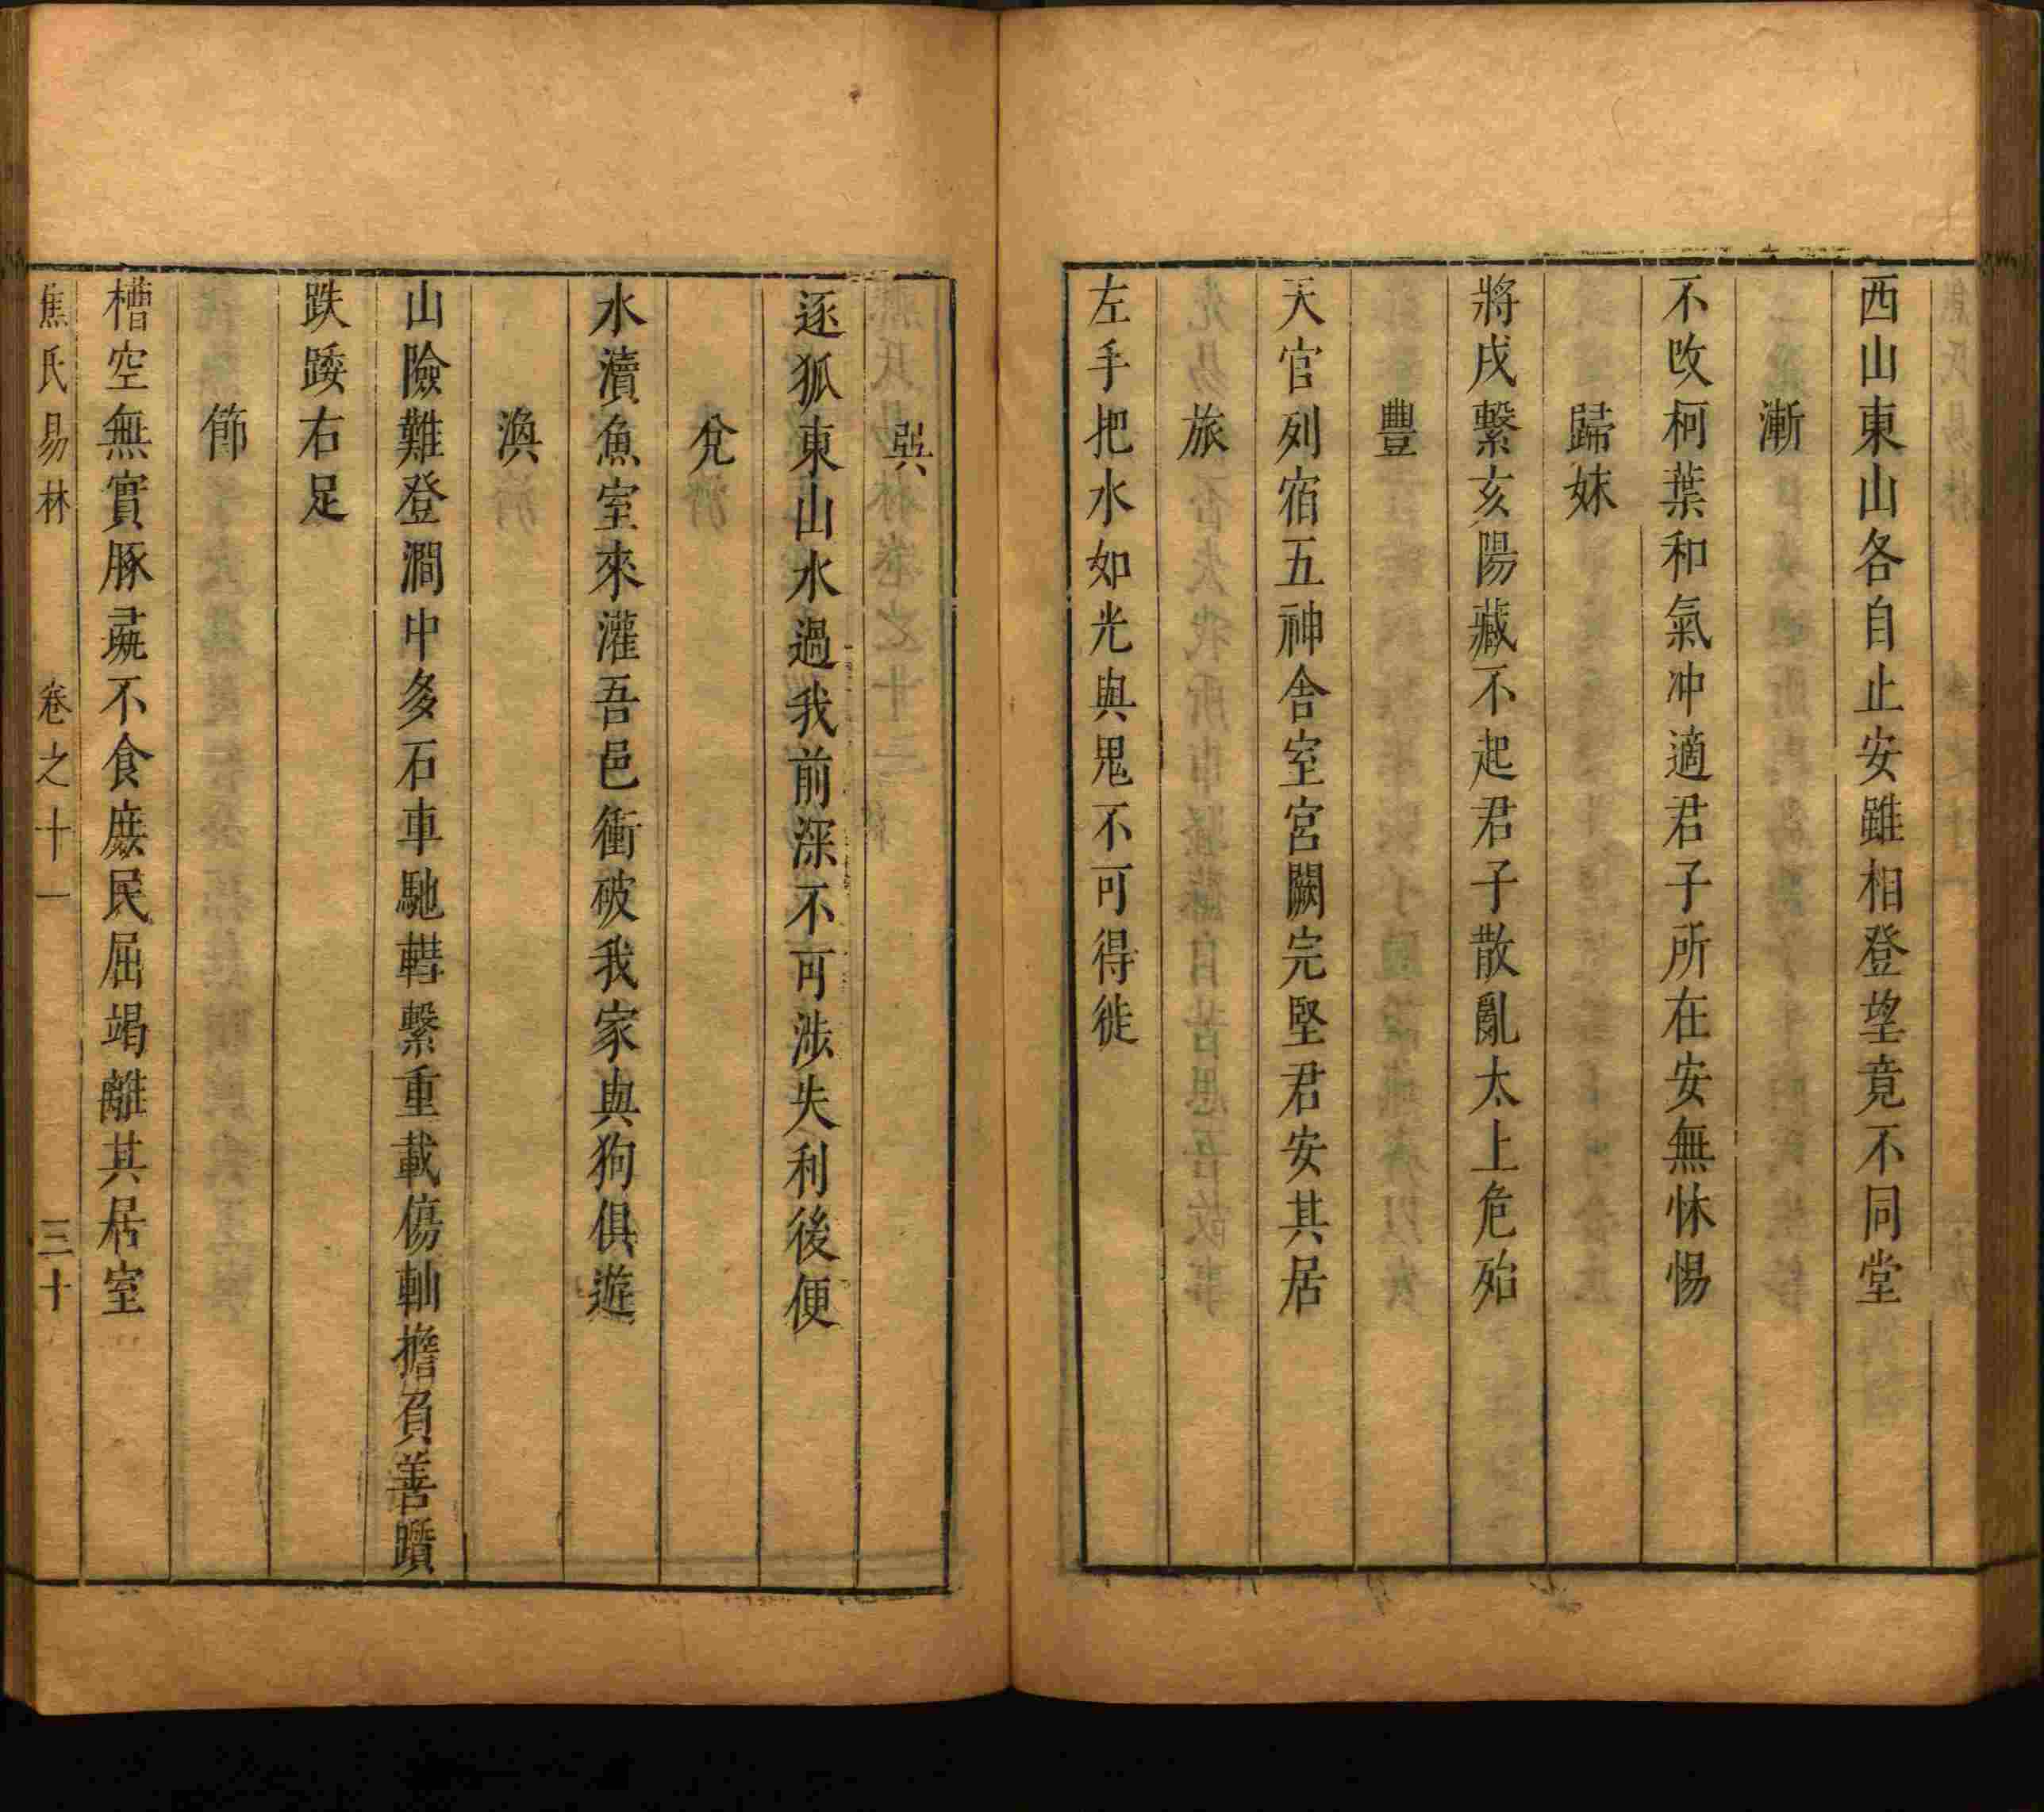 西山東山各自止安雖相登望竟不同堂
漸
不改柯葉和氣冲適君子所在安無怵惕
歸妹
將戌繫亥陽藏不起君子散亂太上危殆
豐
天官列宿五神舍室宮闕完堅君安其居
旅
左手把水如光與鬼不可得徙
巽
逐狐東山水過我前深不可涉失利後便
兌
水瀆魚室來灌吾邑衝破我家與狗俱遊
渙
山險難登澗中多石車馳轊繫重載傷軸擔負善躓
跌踒右足
節
槽空無實豚彘不食庶民屈竭離其居室
焦氏易林 卷之十一 三十